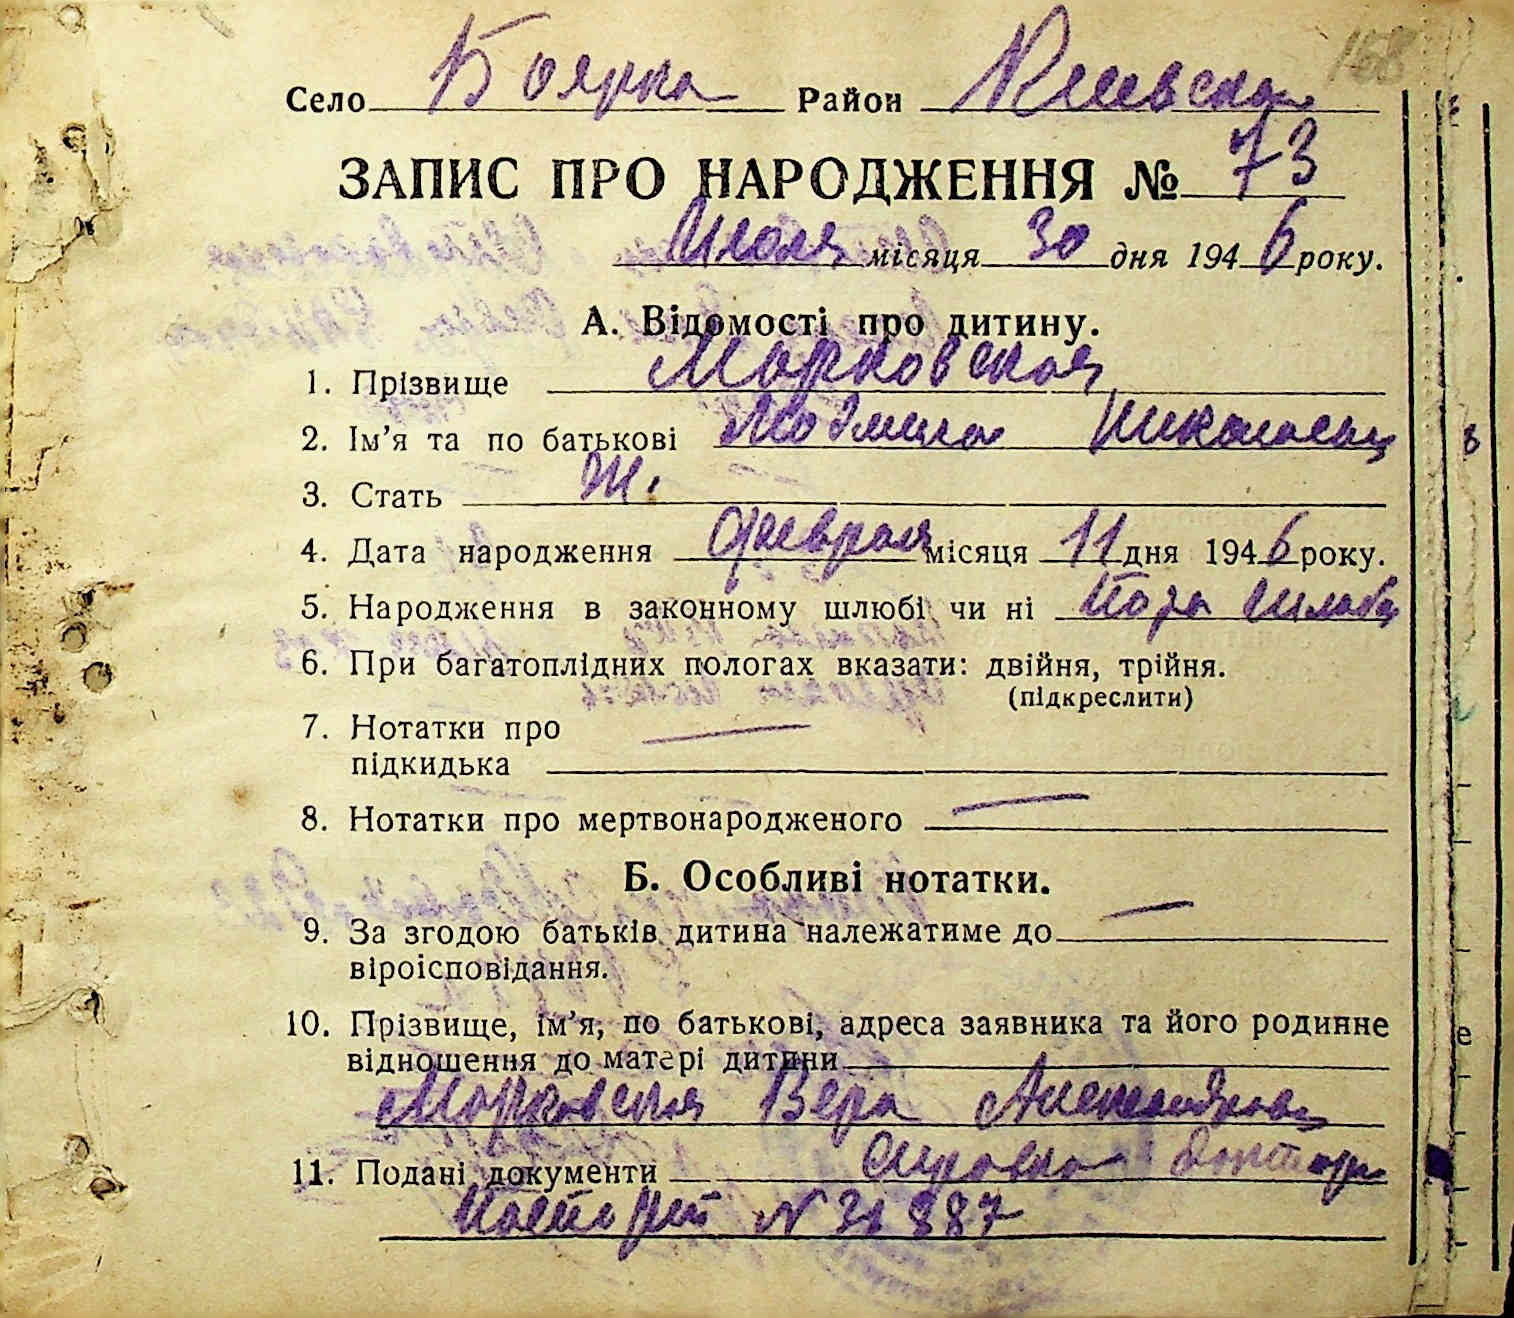 168
Село Боярка Район Киевска
ЗАПИС ПРО НАРОДЖЕННЯ № 73
Июля місяця 30 дня 1946 року.
А. Відомості про дитину.
1. Прізвище Морковская
2. Ім'я та по батькові Людмила
3. Стать Ж.
4. Дата народження февраля місяця 11 дня 1946 року.
5. Народження в законному шлюбі чи ні
6. При багатоплідних пологах вказати: двійня, трійня.
(підкреслити)
7. Нотатки про
підкидька —
8. Нотатки про мертвонародженого —
Б. Особливі нотатки.
9. За згодою батьків дитина належатиме до —
віроісповідання.
10. Прізвище, ім'я, по батькові, адреса заявника та його родинне
відношення до матері дитини
Морковская Вера Александровн
11. Подані документи
Паспорт № 31887